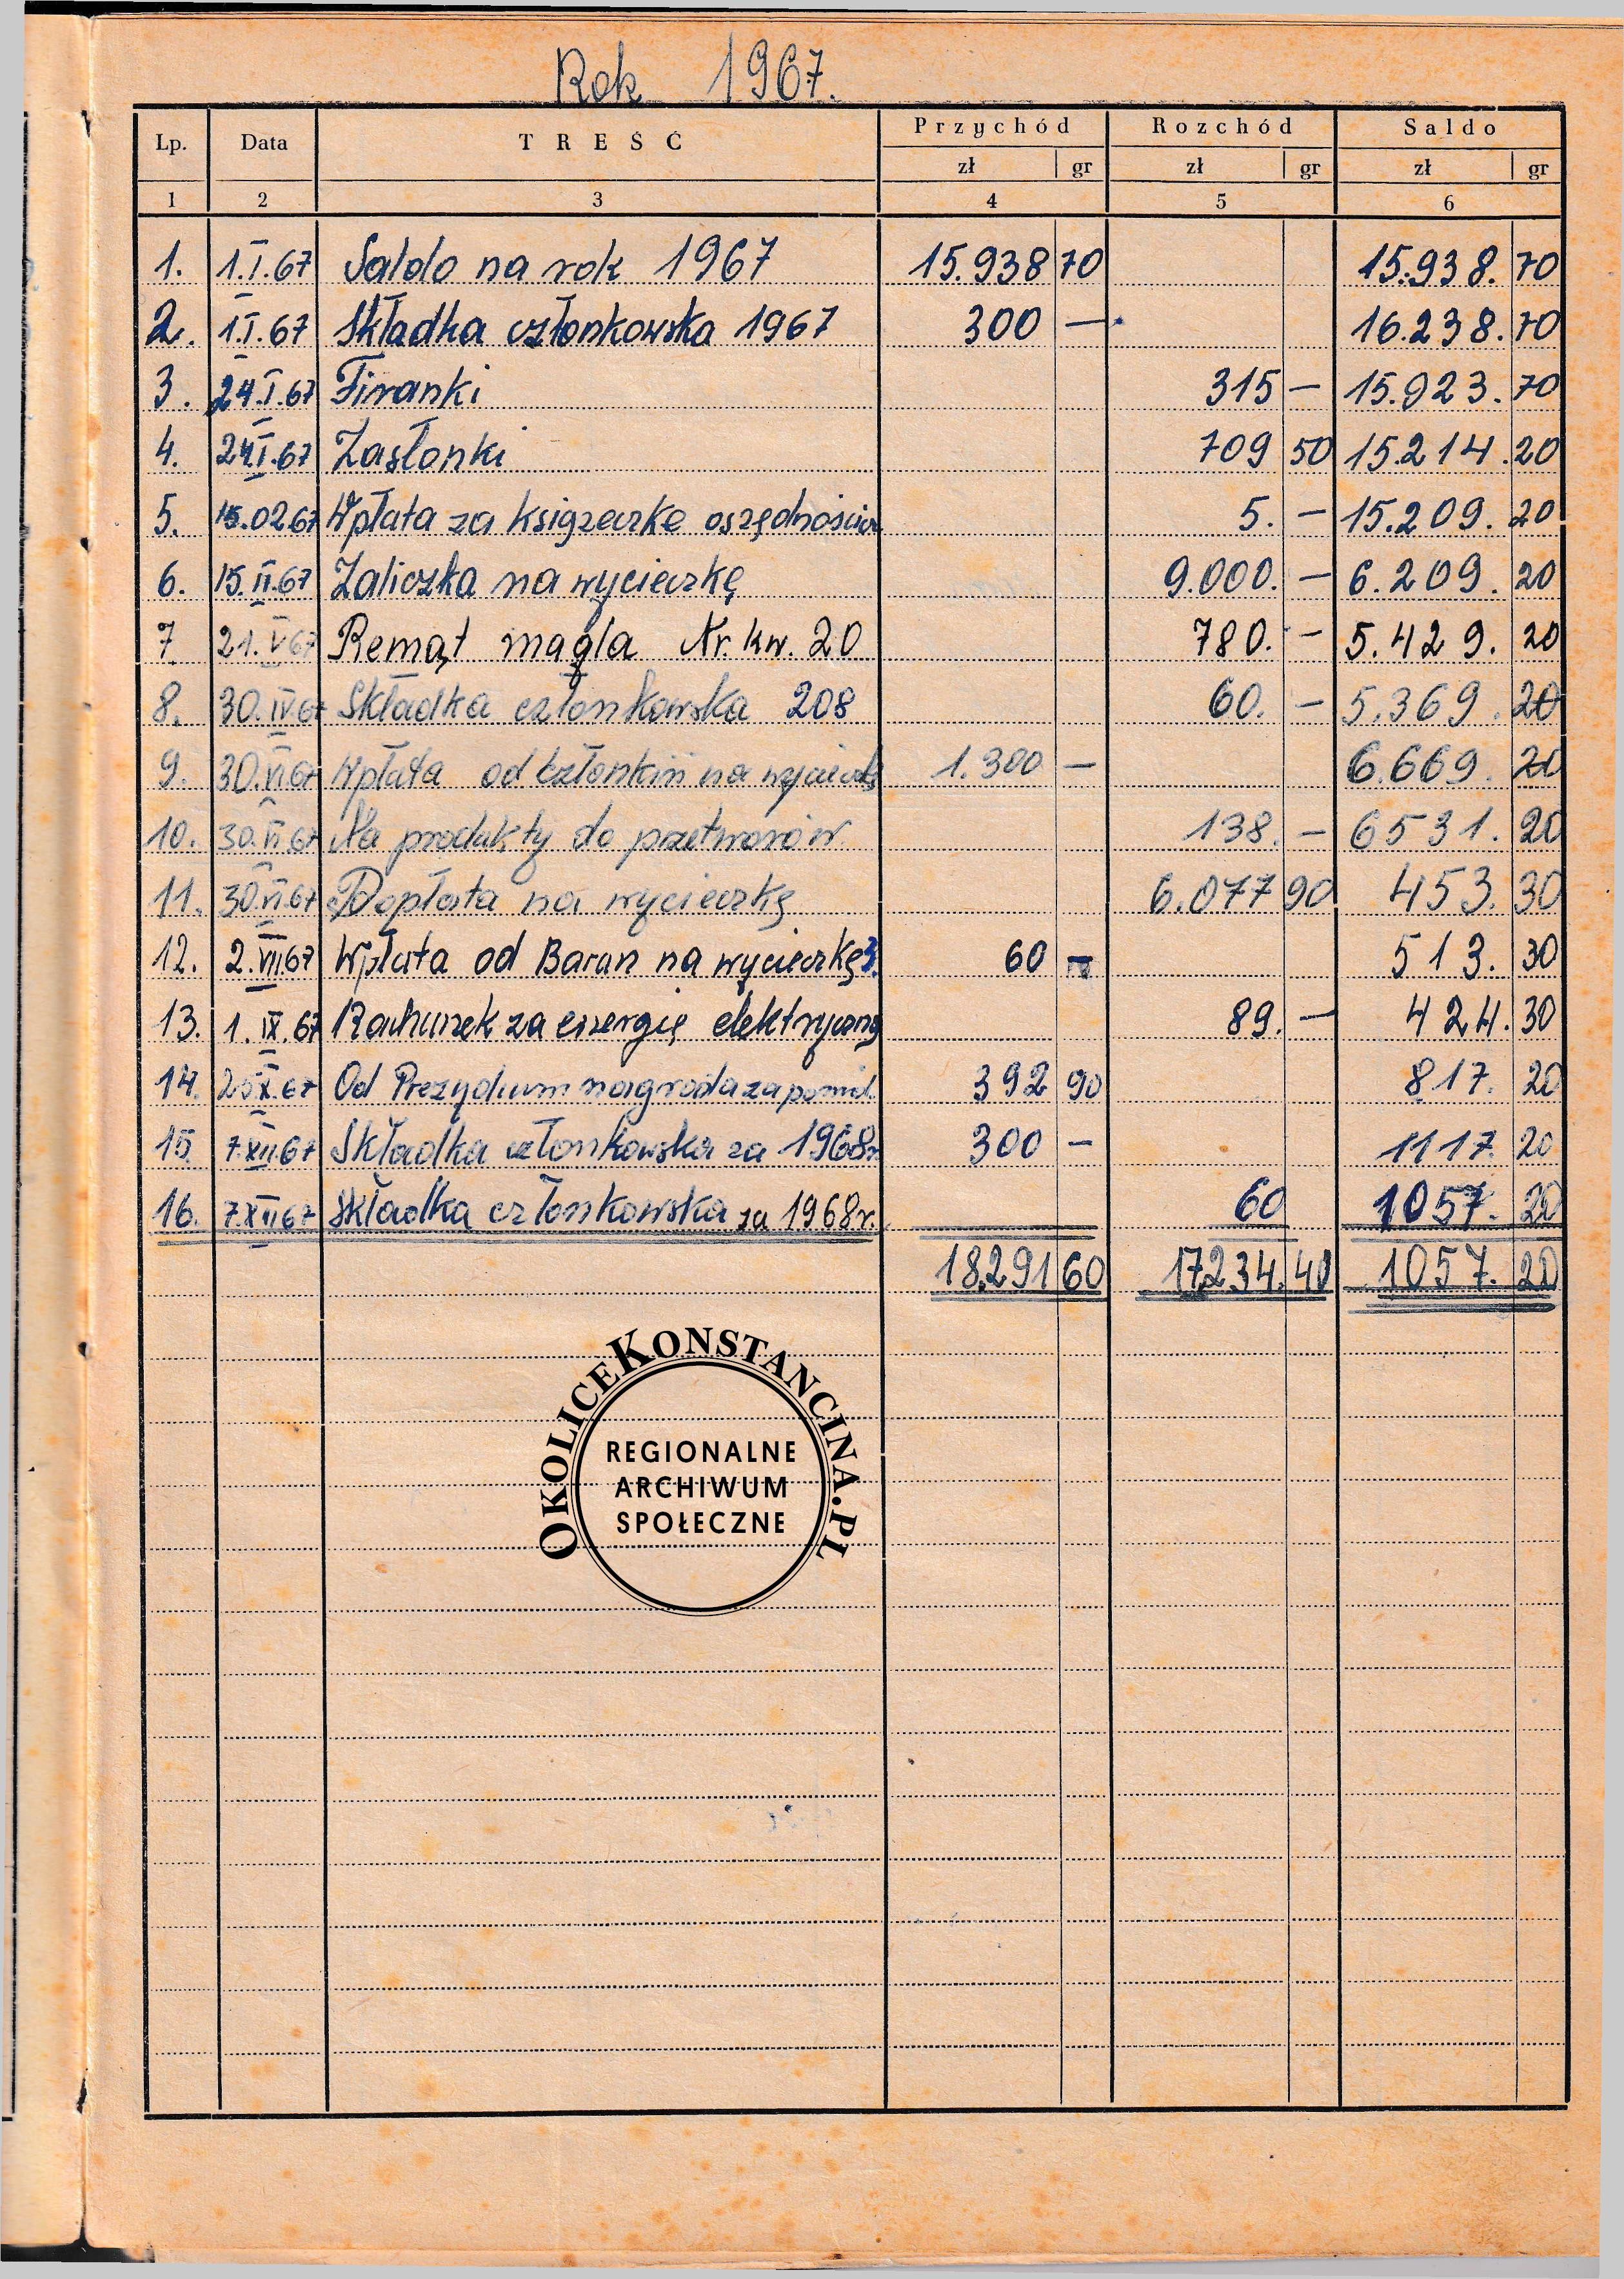 Rok 1967.
Lp. Data TREŚĆ Przychód Rozchód Saldo
zł gr zł gr zł gr
1 2 3 4 5 6
1. 1.I.67 Saldo na rok 1967 15.938 70 15.938. 70
2. 1.I.67 Składka członkowska 1967 300 — 16.238. 70
3. 24.I.67 Firanki 315 — 15.923. 70
4. 24.I.67 Zasłonki 709 50 15.214. 20
5. 15.02.67 Wpłata za książeczkę 5. — 15.209. 20
6. 15.II.67 Zaliczka na wycieczkę 9.000. — 6.209. 20
7. 21.V.67 Remąt magla Nr. kw. 20 780. — 5.429. 20
8. 30.IV.67 Składka członkowska 208 60. — 5.369. 20
9. 30.VI.67 Wpłata od członkiń na 1.300 — 6.669. 20
10. 30.VI.67 Na produkty do przetworów. 138. — 6531. 20
11. 30.VI.67 Dopłata na wycieczkę 6.077 90 453. 30
12. 2.VII.67 Wpłata od Baran na wycieczkę 60 — 513. 30
13. 1.IX.67 Rachunek za energię elektryczną 89. — 424. 30
14. X.67 Od Prezydium nagroda za 392 90 817. 20
15. 7.XII.67 Składka członkowska za 1968r. 300 — 1117. 20
16. 7.XII.67 Składka członkowska za 1968r. 60 1057. 20
18.291 60 17.234. 40 1057. 20
OKOLICEKONSTANCINA.PL
REGIONALNE
ARCHIWUM
SPOŁECZNE